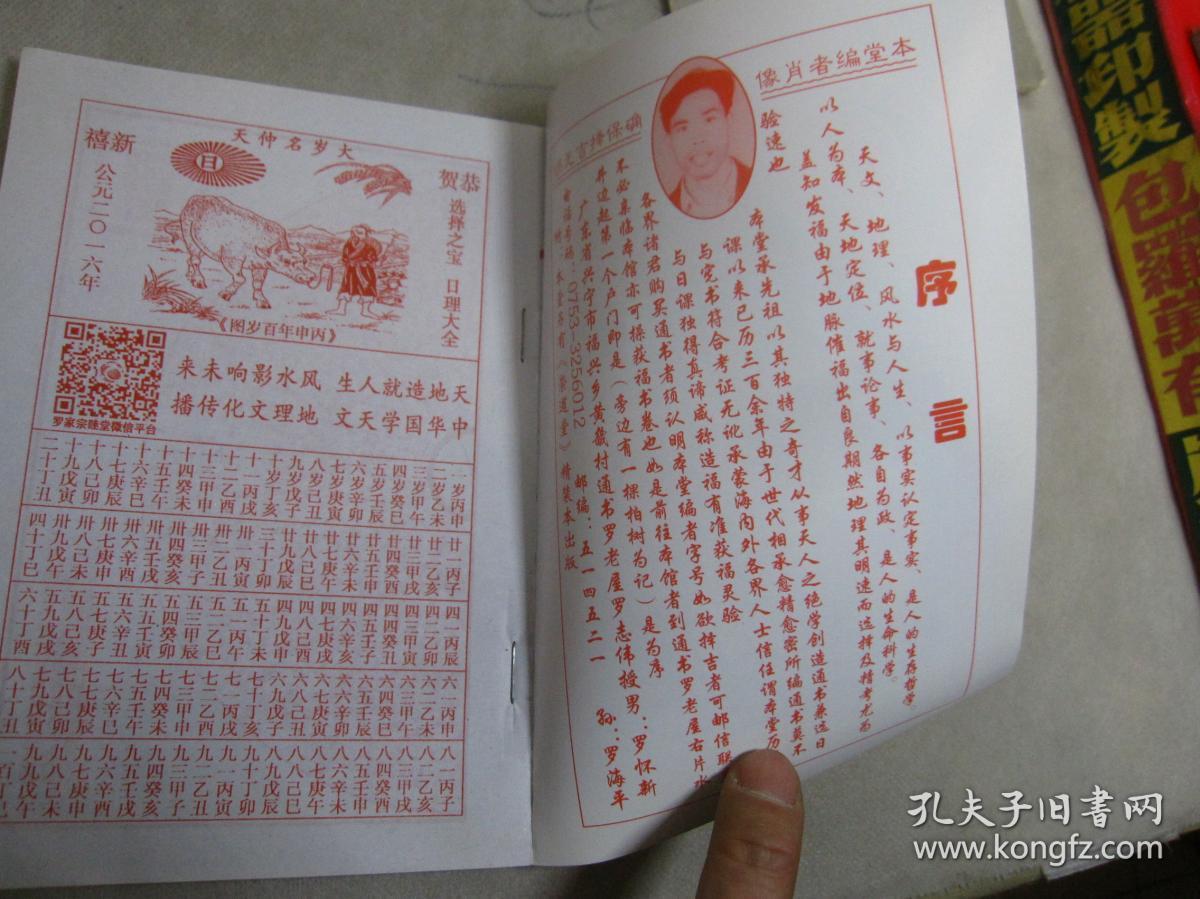 大岁名仲天
恭贺
新禧
选择之宝 日理大全
公元二〇一六年
日
《丙申年百岁图》
天地造就人生 风水影响未来
中华国学天文 地理文化传播
罗家宗睦堂微信平台
一岁丙申
二岁乙未
三岁甲午
四岁癸巳
五岁壬辰
六岁辛卯
七岁庚寅
八岁己丑
九岁戊子
十岁丁亥
十一丙戌
十二乙酉
十三甲申
十四癸未
十五壬午
十六辛巳
十七庚辰
十八己卯
十九戊寅
二十丁丑
廿一丙子
廿二乙亥
廿三甲戌
廿四癸酉
廿五壬申
廿六辛未
廿七庚午
廿八己巳
廿九戊辰
三十丁卯
卅一丙寅
卅二乙丑
卅三甲子
卅四癸亥
卅五壬戌
卅六辛酉
卅七庚申
卅八己未
卅九戊午
四十丁巳
四一丙辰
四二乙卯
四三甲寅
四四癸丑
四五壬子
四六辛亥
四七庚戌
四八己酉
四九戊申
五十丁未
五一丙午
五二乙巳
五三甲辰
五四癸卯
五五壬寅
五六辛丑
五七庚子
五八己亥
五九戊戌
六十丁酉
六一丙申
六二乙未
六三甲午
六四癸巳
六五壬辰
六六辛卯
六七庚寅
六八己丑
六九戊子
七十丁亥
七一丙戌
七二乙酉
七三甲申
七四癸未
七五壬午
七六辛巳
七七庚辰
七八己卯
七九戊寅
八十丁丑
八一丙子
八二乙亥
八三甲戌
八四癸酉
八五壬申
八六辛未
八七庚午
八八己巳
八九戊辰
九十丁卯
九一丙寅
九二乙丑
九三甲子
九四癸亥
九五壬戌
九六辛酉
九七庚申
九八己未
九九戊午
百
序言
本堂编者肖像
天文、地理、风水与人生、以事实认定事实、是人的生存哲学、
以人为本、天地定位、就事论事、各自为政、是人的生命科学。
盖知发福由于地脉催福出自良期然地理其明速而选择及精考尤为
验速也
本堂承先祖以其独特之奇才从事天人之绝学创造通书兼选日
课以来已历三百余年由于世代相承愈精愈密所编通书莫不
与完书符合考证无讹承蒙海内外各界人士信任谓本堂历
与日课独得真谛咸称造福有准获福灵验
各界诸君购买通书者须认明本堂编者字号如欲择吉者可邮信联
不必亲临本馆亦可操获福书卷也如是前往本馆者到通书罗老屋右片水
井边起第一个户门即是(旁边有一棵柏树为记)是为序
广东省兴宁市福兴乡黄畿村通书罗老屋罗志伟授男:罗怀新
孙:罗海平
0753-3256012 邮编:五一四五二一
本堂另有《崇道堂》精装本出版
确保择吉
器印製
包羅萬有
孔夫子旧书网
www.kongfz.com